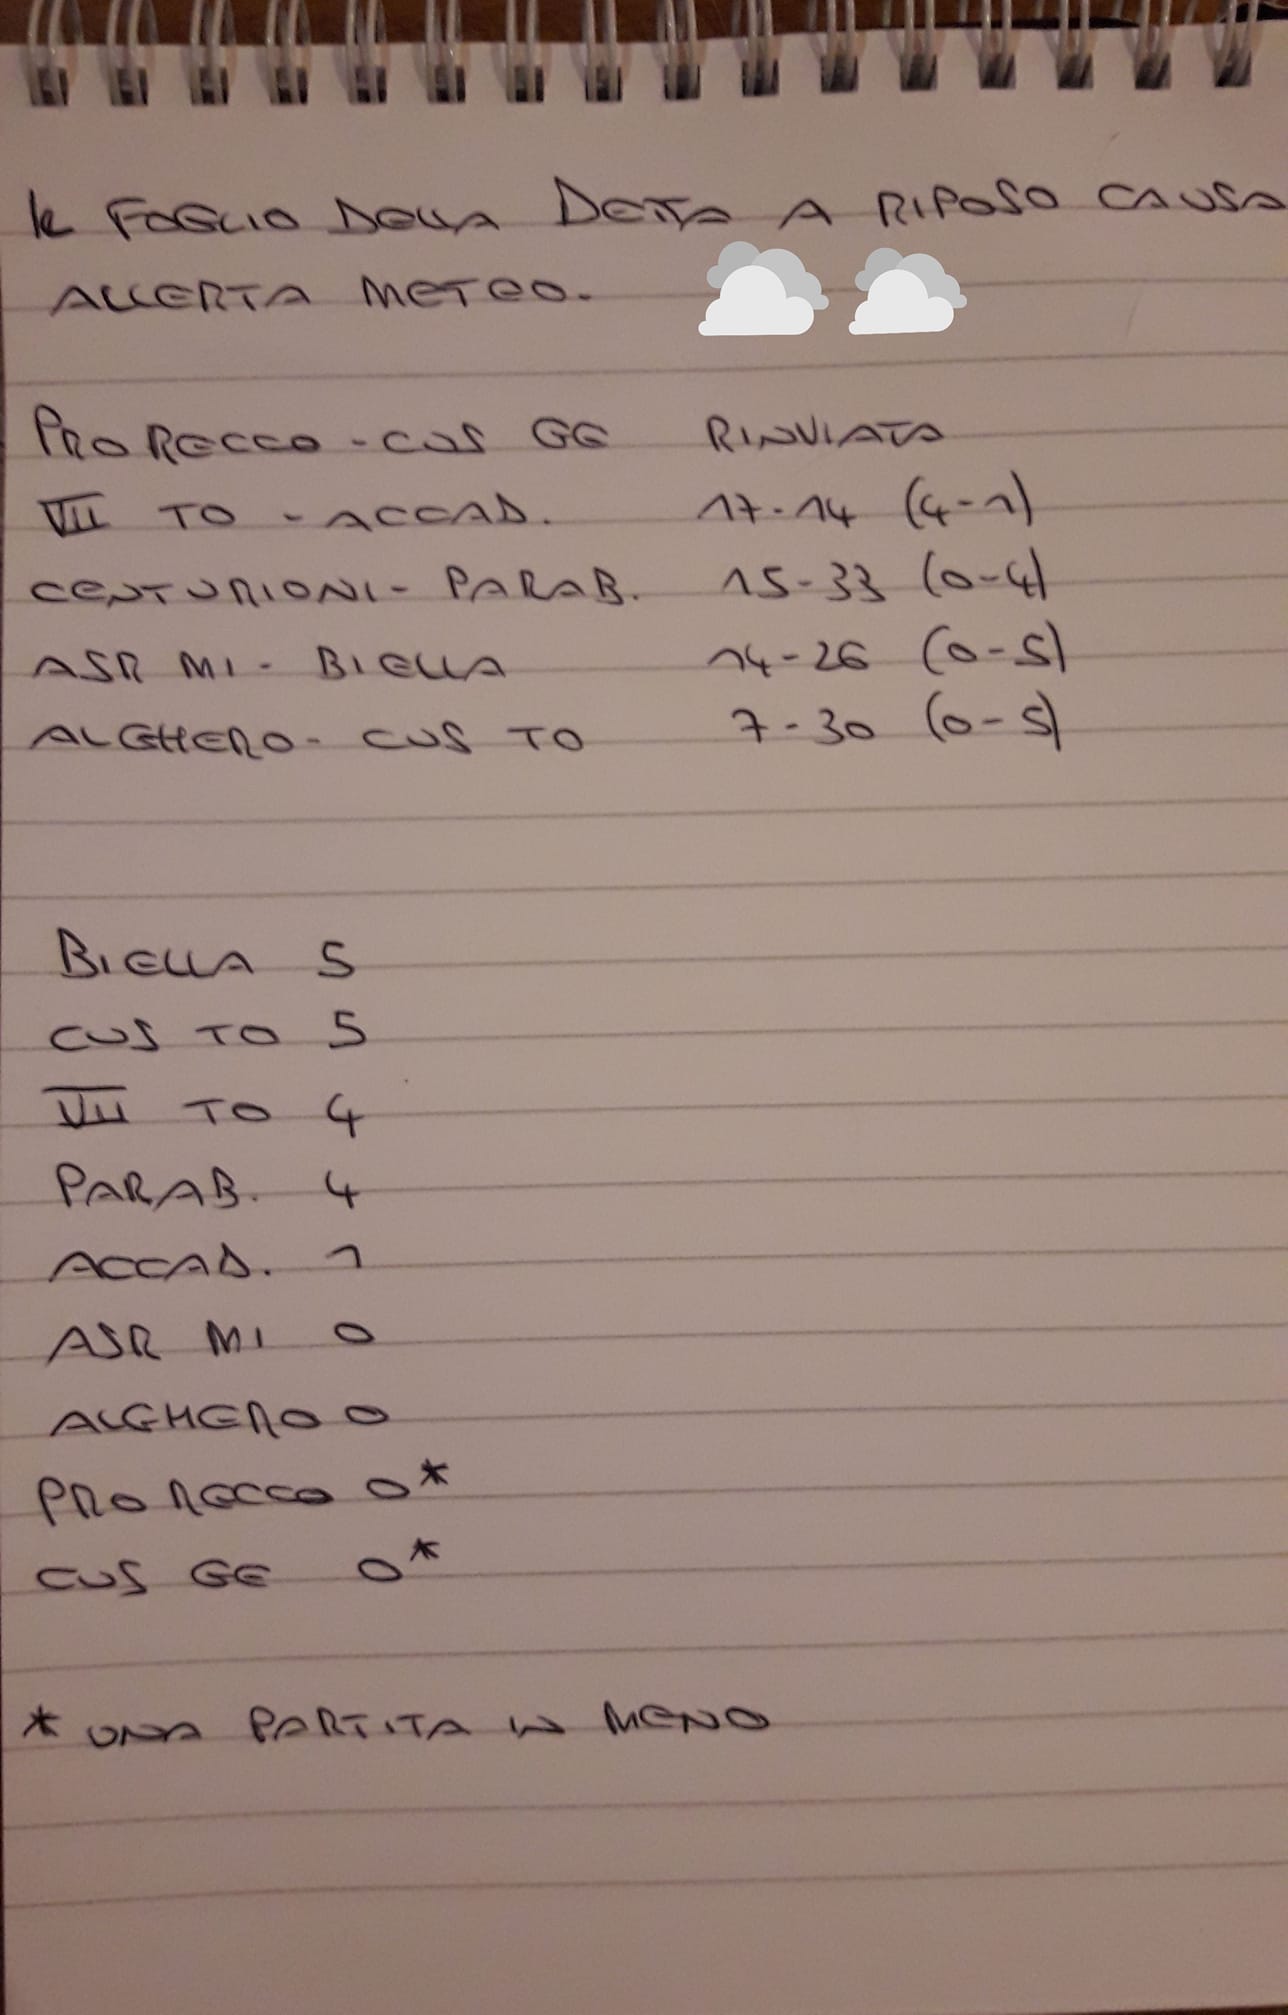 IL FOGLIO DELLA DETTA A RIPOSO CAUSA
ALLERTA METEO.
PRO RECCO - CUS GE RINVIATA
VII TO - ACCAD. 17-14 (4-1)
CENTURIONI - PARAB. 15-33 (0-4)
ASR MI - BIELLA 14-26 (0-5)
ALGHERO - CUS TO 7-30 (0-5)
BIELLA 5
CUS TO 5
VII TO 4
PARAB. 4
ACCAD. 1
ASR MI 0
ALGHERO 0
PRO RECCO 0*
CUS GE 0*
* UNA PARTITA IN MENO